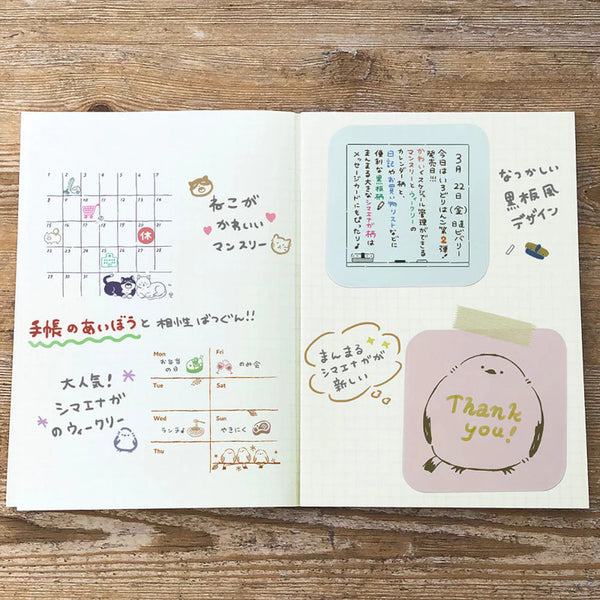 1 2 3 4 5 6 7
8 9 10 11 12 13 14
15 16 17 18 19 20 21
休
22 23 24 25 26 27 28
29 30 31
ねこが
かわいい
マンスリー
手帳のあいぼうと相性ばつぐん!!
大人気!
シマエナガ
のウィークリー
Mon
お弁当
の日
Fri
のみ会
Tue
Sat
Wed
ランチ♪
Sun
やきにく
Thu
3月22日(金)
今日はいろどりはんこ第2弾!
発売日!!!
かわいくスケジュール管理ができる
マンスリーとウィークリーの
カレンダー柄と、
日記やお買い物リストなどに
便利な黒板柄
まんまる大きなシマエナガ柄は
メッセージカードにもぴったり♪
なつかしい
黒板風
デザイン
まんまる
シマエナガが
新しい
Thank
you!